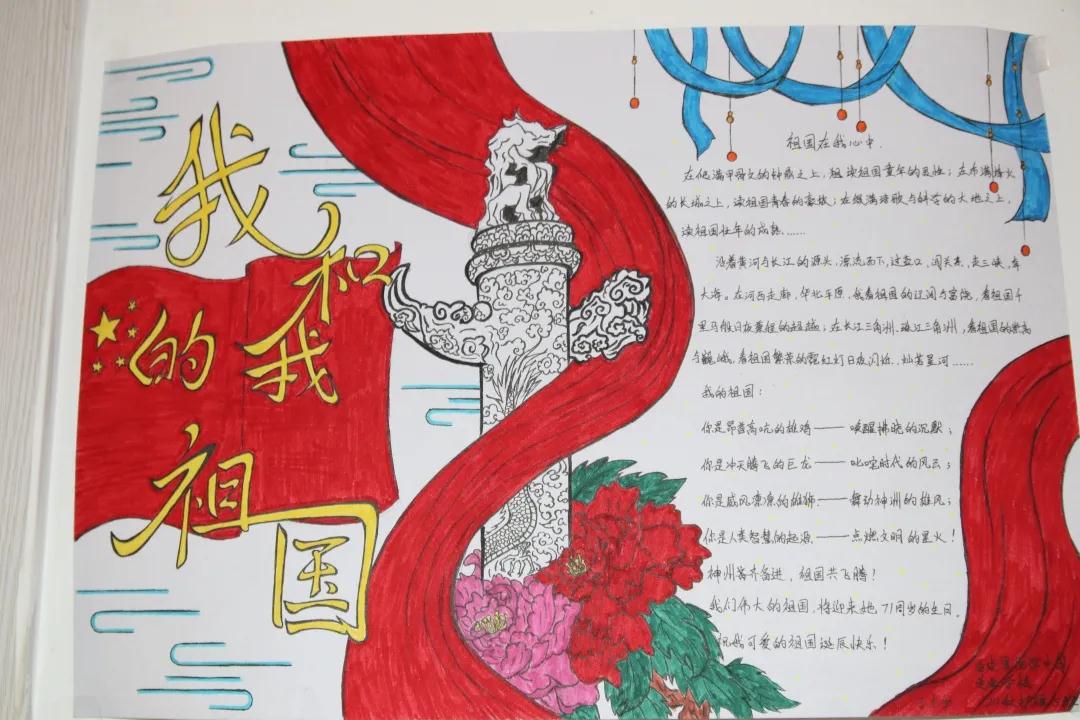 我和我
的祖国
祖国在我心中.
在低满甲骨文的钟鼎之上,组读祖国童年的灵性;在布满烽火
的长城之上,读祖国青春的豪放;在缀满诗歌与科学的大地之上,
读祖国壮年的成熟……
沿着黄河与长江的源头,漂流而下,过壶口,闯关东,走三峡,奔
大海。在河西走廊,华北平原,我看祖国的辽阔与富饶,看祖国千
里马般日夜兼程的超越;在长江三角洲、珠江三角洲,看祖国的崇高
与巍峨,看祖国繁荣的霓虹灯日夜闪烁、灿若星河……
我的祖国:
你是昂首高吭的雄鸡——唤醒拂晓的沉默;
你是冲天腾飞的巨龙——叱咤时代的风云;
你是威风凛凛的雄狮——舞动神州的雄风;
你是人类智慧的起源——点燃文明的星火!
神州齐奋进,祖国共飞腾!
我们伟大的祖国,将迎来她71周岁的生日。
祝我可爱的祖国诞辰快乐!